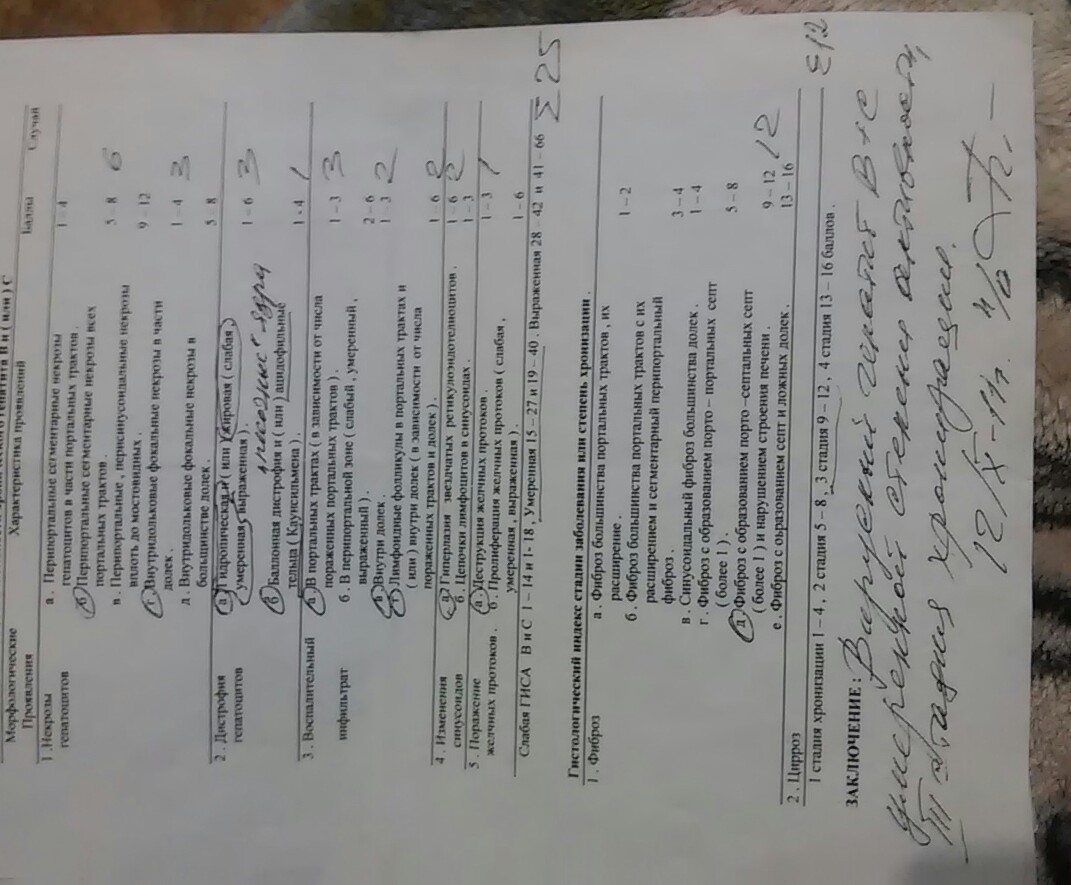 гепатита В и ( или ) С
Морфологические Характеристика проявлений Баллы Случай
Проявления
1.Некрозы а . Перипортальные сегментарные некрозы 1 – 4
гепатоцитов гепатоцитов в части портальных трактов .
б Перипортальные сегментарные некрозы всех 5 – 8 6
портальных трактов .
в . Перипортальные , перисинусоидальные некрозы 9 – 12
вплоть до мостовидных .
г Внутридольковые фокальные некрозы в части 1 – 4 3
долек .
д . Внутридольковые фокальные некрозы в 5 – 8
большинстве долек .
2 . Дистрофия а Гидропическая и ( или ) жировая ( слабая , 1 – 6 3
гепатоцитов умеренная , выраженная ) .
б Баллонная дистрофия и ( или ) ацидофильные 1 - 4 1
тельца ( Каунсильмена ) .
3 . Воспалительный а . В портальных трактах ( в зависимости от числа 1 – 3 3
пораженных портальных трактов ) .
инфильтрат б . В перипортальной зоне ( слабый , умеренный , 2 – 6
выраженный ) .
в Внутри долек . 1 – 3 2
Лимфоидные фолликулы в портальных трактах и
( или ) внутри долек ( в зависимости от числа
пораженных трактов и долек ) . 1 – 6 2
4 . Изменения а Гиперплазия звездчатых ретикулоэндотелиоцитов . 1 – 6 2
синусоидов б . Цепочки лимфоцитов в синусоидах . 1 – 3
5 . Поражение а . Деструкция желчных протоков . 1 – 3 1
желчных протоков . б . Пролиферация желчных протоков ( слабая ,
умеренная , выраженная ) . 1 – 6
Слабая ГИСА В и С 1 – 14 и 1- 18 , Умеренная 15 – 27 и 19 – 40 . Выраженная 28 – 42 и 41 – 66 Σ 25
Гистологический индекс стадии заболевания или степень хронизации .
1 . Фиброз а . Фиброз большинства портальных трактов , их 1 – 2
расширение .
б . Фиброз большинства портальных трактов с их
расширением и сегментарный перипортальный
фиброз . 3 – 4
в . Синусоидальный фиброз большинства долек . 1 – 4
г . Фиброз с образованием порто – портальных септ
( более 1 ) . 5 – 8
д Фиброз с образованием порто –септальных септ
( более 1 ) и нарушением строения печени . 9 – 12 12
е . Фиброз с образованием септ и ложных долек . 13 – 16
2 . Цирроз
1 стадия хронизации 1 – 4 , 2 стадия 5 – 8 , 3 стадия 9 – 12 , 4 стадия 13 – 16 баллов . Σ 12
ЗАКЛЮЧЕНИЕ : Вирусный гепатит В + С
умеренной степени активности,
III стадия хронизации.
12/X-11г.